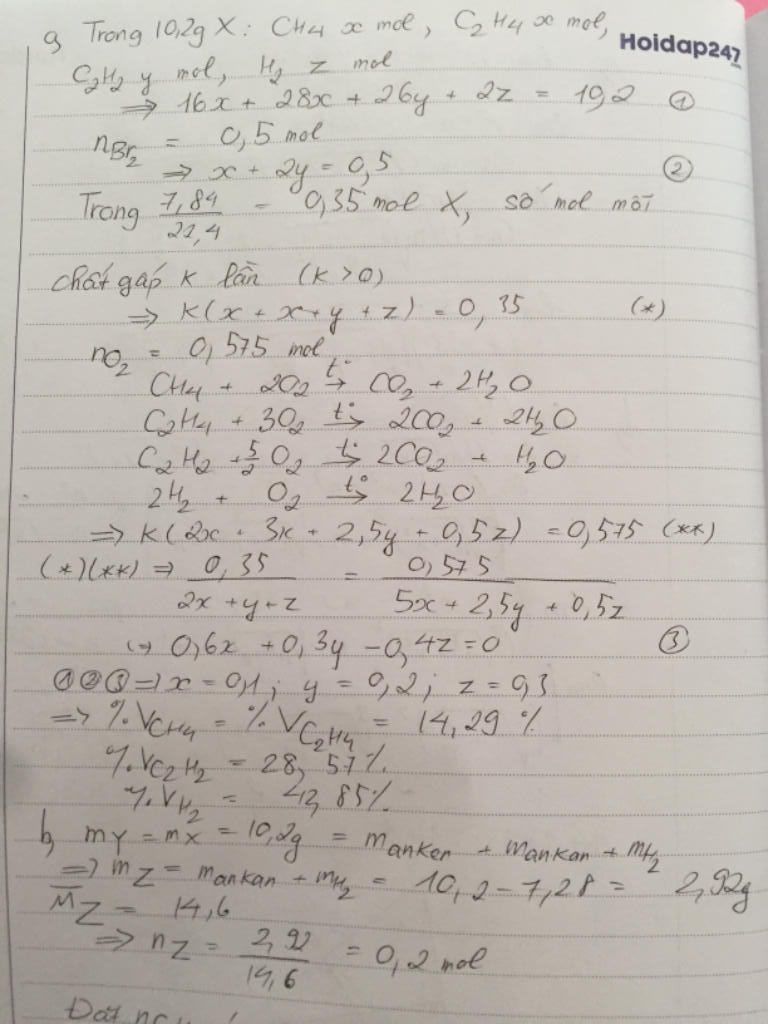 a, Trong 10,2g X : CH4 x mol, C2H4 x mol,
Hoidap247
C2H2 y mol, H2 z mol
=> 16x + 28x + 26y + 2z = 19,2 ①
nBr2 = 0,5 mol
=> x + 2y = 0,5 ②
Trong 7,84/22,4 = 0,35 mol X, số mol mỗi
chất gấp K lần (K > 0)
=> K(x + x + y + z) = 0,35 (*)
nO2 = 0,575 mol
CH4 + 2O2 t°→ CO2 + 2H2O
C2H4 + 3O2 t°→ 2CO2 + 2H2O
C2H2 + 5/2 O2 t°→ 2CO2 + H2O
2H2 + O2 t°→ 2H2O
=> K(2x + 3x + 2,5y + 0,5z) = 0,575 (**)
(*)(**) => 0,35/(2x + y + z) = 0,575/(5x + 2,5y + 0,5z)
<=> 0,6x + 0,3y - 0,4z = 0 ③
①②③ => x = 0,1 ; y = 0,2 ; z = 0,3
=> %VCH4 = %VC2H4 = 14,29 %
%VC2H2 = 28,57%
%VH2 = 42,85%
b, mY = mX = 10,2g = manken + mankan + mH2
=> mZ = mankan + mH2 = 10,2 - 7,28 = 2,92g
M̅Z = 14,6
=> nZ = 2,92/14,6 = 0,2 mol
Đặt